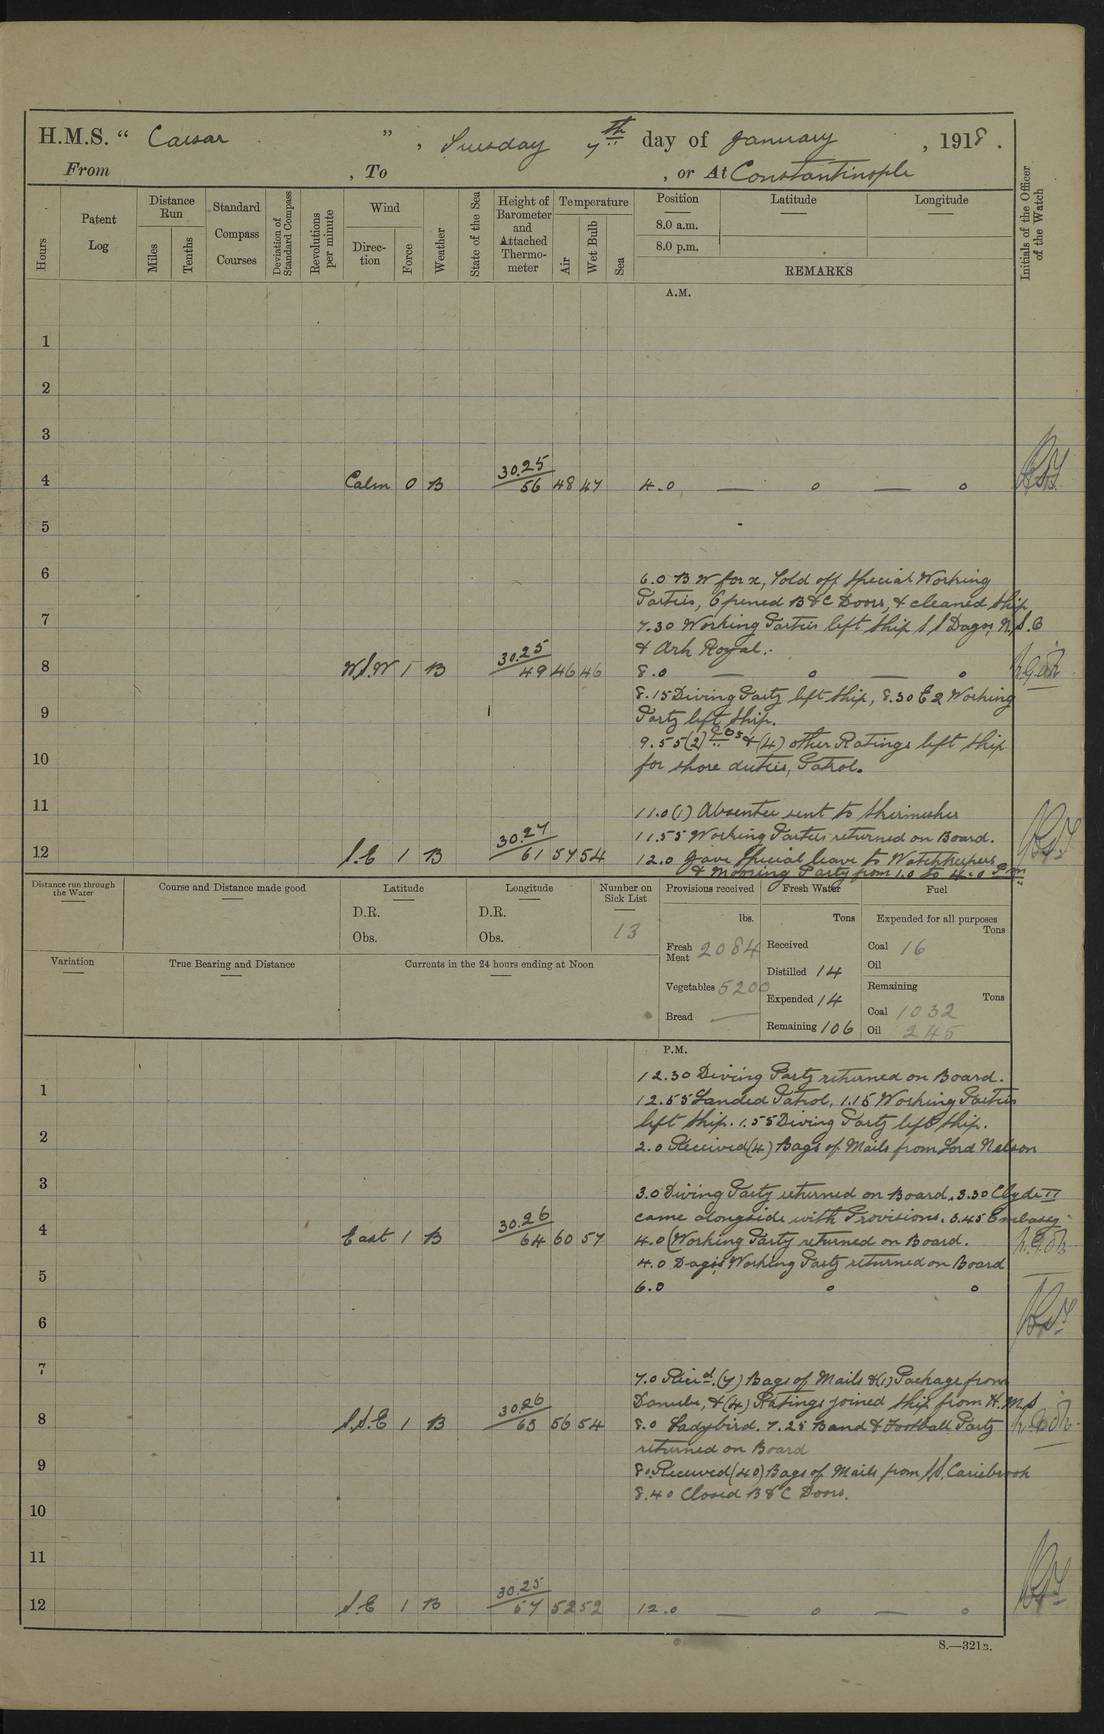 H.M.S. " Caesar ", Tuesday 7th day of January, 1918.
From , To , or At Constantinople
Hours
Patent Log
Distance Run
Miles
Tenths
Standard Compass Courses
Deviation of Standard Compass
Revolutions per minute
Wind
Direction
Force
Weather
State of the Sea
Height of Barometer and Attached Thermometer
Temperature
Air
Wet Bulb
Sea
Position
8.0 a.m.
8.0 p.m.
Latitude
Longitude
REMARKS
Initials of the Officer of the Watch
A.M.
1
2
3
4 Calm 0 B 30.25 56 48 47 4.0 — o — o
5
6 6.0 B W for x, Told off Special Working
Parties, Opened B & C Doors, & cleaned Ship
7 7.30 Working Parties left Ship S S Dagos, N.S.B
& Ark Royal.
8 W.S.W 1 B 30.25 49 46 46 8.0 — o — o
8.15 Diving Party left Ship, 8.30 E2 Working
9 Party left Ship.
9.55 (2) P.Os & (4) other Ratings left Ship
10 for shore duties, Patrol.
11 11.0 (1) Absentee sent to
11.55 Working Parties returned on Board.
12 S.E 1 B 30.27 61 57 54 12.0 Gave Special leave to Watchkeepers
& Mooring Party from 1.0 to 4.0 P.m
Distance run through the Water
Course and Distance made good
Latitude
D.R.
Obs.
Longitude
D.R.
Obs.
Number on Sick List
13
Provisions received
lbs.
Fresh Meat 2084
Vegetables 5200
Bread —
Fresh Water
Tons
Received
Distilled 14
Expended 14
Remaining 106
Fuel
Expended for all purposes
Tons
Coal 16
Oil
Remaining
Tons
Coal 1032
Oil 245
Variation
True Bearing and Distance
Currents in the 24 hours ending at Noon
P.M.
12.30 Diving Party returned on Board.
1 12.55 Landed Patrol, 1.15 Working Parties
left Ship. 1.55 Diving Party left Ship.
2 2.0 Received (4) Bags of Mails from Lord Nelson
3 3.0 Diving Party returned on Board. 3.30 Clyde II
came alongside with Provisions. 3.45 Embassy
4 East 1 B 30.26 64 60 57 4.0 (Working Party returned on Board.
5 4.0 Dagos Working Party returned on Board
6.0 o o
6
7 7.0 Recd. (7) Bags of Mails & (1) Package from
Danube, & (4) Ratings joined Ship from H.M.S
8 S.S.E 1 B 30.26 65 56 54 8.0 Ladybird. 7.25 Band & Football Party
returned on Board
9 8.0 Received (40) Bags of Mails from S.S. Cariebrook
8.40 Closed B & C Doors.
10
11
12 S.E 1 B 30.25 57 52 52 12.0 — o — o
S.—321B.